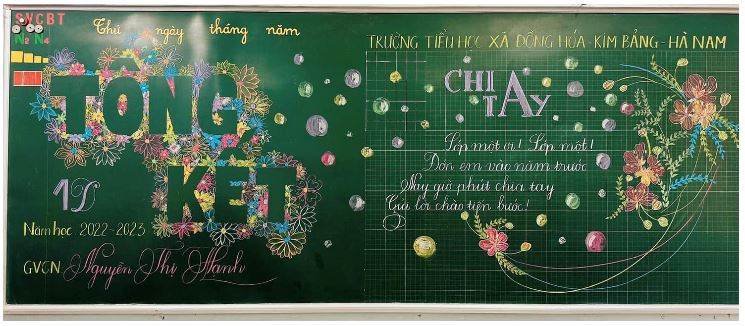 SVCBT
N2 N4
Thứ ngày tháng năm
TỔNG
KẾT
1D
Năm học 2022-2023
GVCN Nguyễn Thị Hạnh
TRƯỜNG TIỂU HỌC XÃ ĐỒNG HÓA - KIM BẢNG - HÀ NAM
CHIA
TAY
Lớp một ơi! Lớp một!
Đón em vào năm trước
Nay giờ phút chia tay
Gửi lời chào tiến bước!